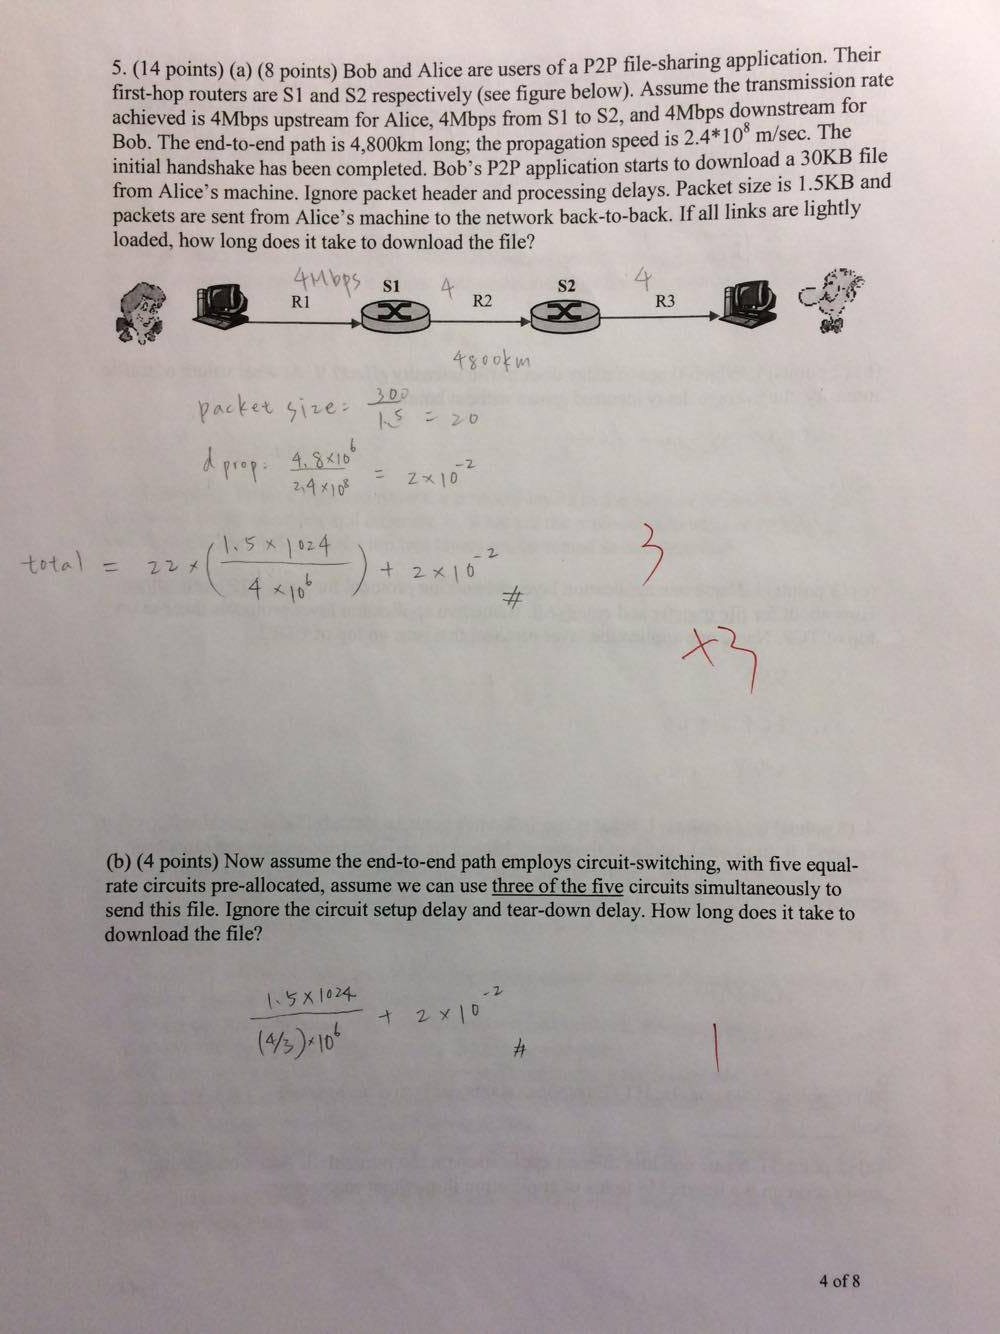 5. (14 points) (a) (8 points) Bob and Alice are users of a P2P file-sharing application. Their
first-hop routers are S1 and S2 respectively (see figure below). Assume the transmission rate
achieved is 4Mbps upstream for Alice, 4Mbps from S1 to S2, and 4Mbps downstream for
Bob. The end-to-end path is 4,800km long; the propagation speed is 2.4*10⁸ m/sec. The
initial handshake has been completed. Bob's P2P application starts to download a 30KB file
from Alice's machine. Ignore packet header and processing delays. Packet size is 1.5KB and
packets are sent from Alice's machine to the network back-to-back. If all links are lightly
loaded, how long does it take to download the file?
4Mbps S1 4 S2 4
R1 R2 R3
4800km
packet size: 300/1.5 = 20
d prop: 4.8×10⁶/2.4×10⁸ = 2×10⁻²
total = 22×(1.5×1024/4×10⁶) + 2×10⁻² #
3
+3
(b) (4 points) Now assume the end-to-end path employs circuit-switching, with five equal-
rate circuits pre-allocated, assume we can use three of the five circuits simultaneously to
send this file. Ignore the circuit setup delay and tear-down delay. How long does it take to
download the file?
1.5×1024/(4/3)×10⁶ + 2×10⁻² #
1
4 of 8